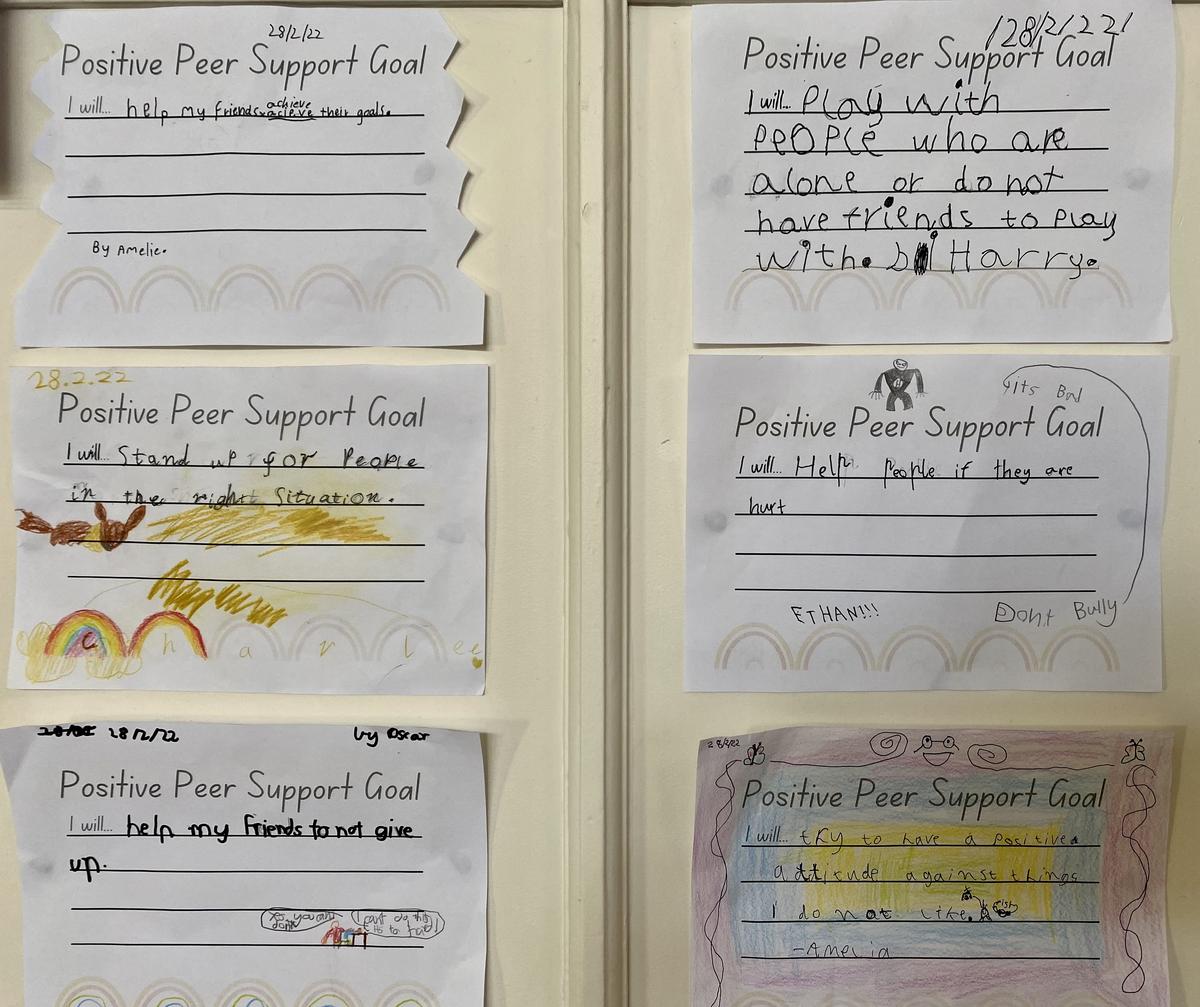 28/2/22
Positive Peer Support Goal
I will... help my friends achieve
acieve their goals.
By Amelie.
28.2.22
Positive Peer Support Goal
I will... Stand up for People
in the right Situation.
C h a r l ee
28/2/22 by Oscar
Positive Peer Support Goal
I will... help my friends to not give
up.
28/2/22
Positive Peer Support Goal
I will... Play with
PEOPle who are
alone or do not
have friends to Play
with. Harry.
its Bad
Positive Peer Support Goal
I will... Help People if they are
hurt
ETHAN!!!
Dont Bully
28/2/22
Positive Peer Support Goal
I will... try to have a positive
attitude against things
I do not like.
-Amelia